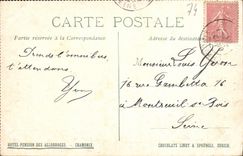 74
CARTE POSTALE
Partie réservée à la Correspondance
Adresse du destinataire
Prends l'omnibus
t'attendons
Yvon
Monsieur Louis Yvon
76 rue Gambetta 76
à Montreuil s/ Bois
Seine
HOTEL-PENSION DES ALLOBROGES - CHAMONIX
CHOCOLATS LINDT & SPRÜNGLI, ZURICH.